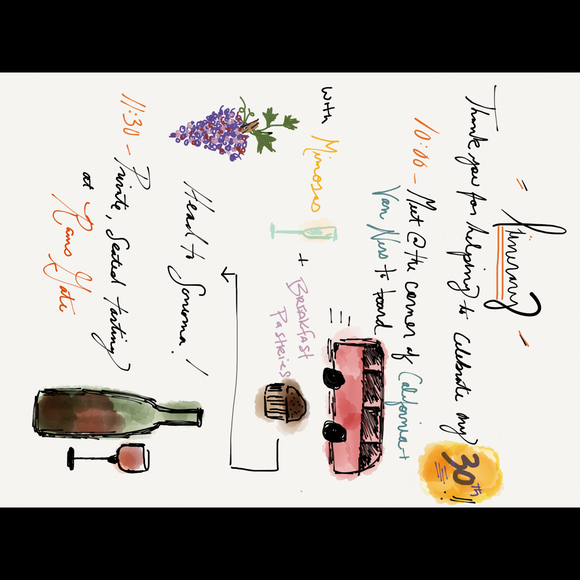 - Itinerary -
Thank you for helping to celebrate my 30th!!
10:00 - Meet @ the corner of California +
Van Ness to board
with Mimosas + Breakfast
Pastries
Head to Sonoma!
11:30 - Private, Seated tasting
at Rams Gate